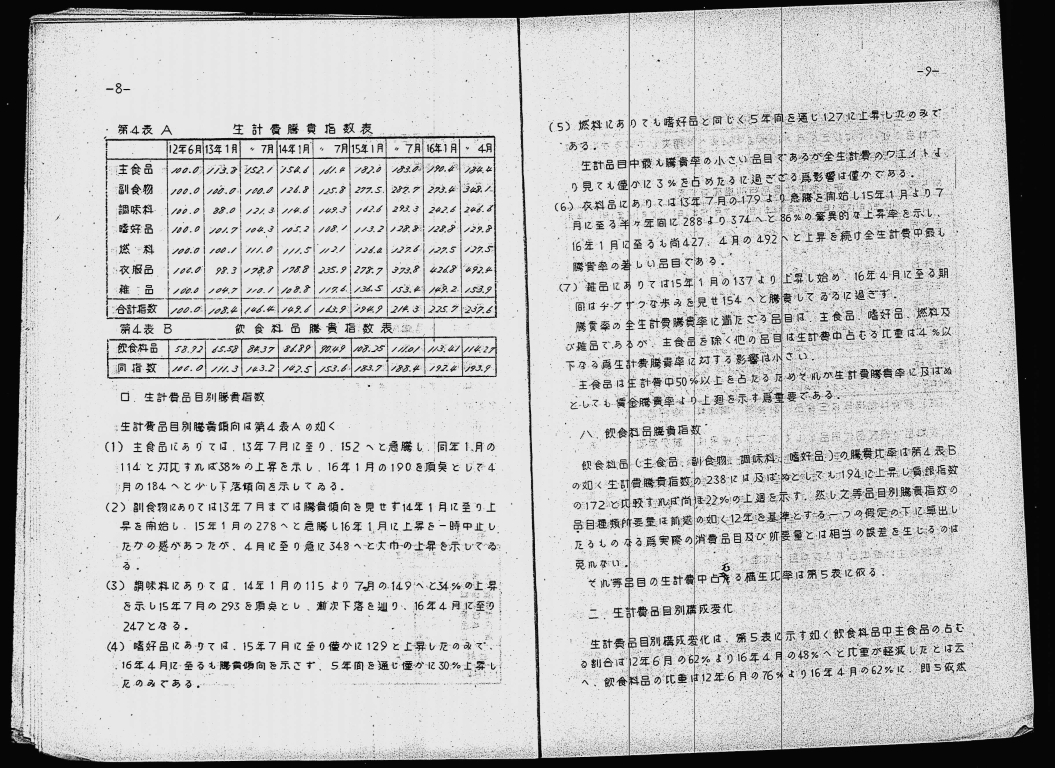 -8-
第4表 A 生計費騰貴指数表
12年6月 13年1月 〃 7月 14年1月 〃 7月 15年1月 〃 7月 16年1月 〃 4月
主食品 100.0 113.8 152.1 156.6 161.4 182.0 183.0 190.6 184.4
副食物 100.0 100.0 100.0 126.8 125.8 277.5 287.7 273.4 348.1
調味料 100.0 88.0 121.3 114.6 149.3 162.6 293.3 242.6 246.6
嗜好品 100.0 101.7 104.3 105.2 108.1 113.2 128.8 128.8 129.8
燃料 100.0 100.1 111.0 111.5 112.1 126.4 127.6 127.5 127.5
衣服品 100.0 98.3 178.8 178.8 235.9 278.7 373.8 426.8 492.4
雑品 100.0 109.7 110.1 108.8 117.6 136.5 153.4 149.2 153.9
合計指数 100.0 108.4 146.4 149.6 163.9 194.9 214.3 225.7 237.6
第4表 B 飲食料品騰貴指数表
飲食料品 58.92 65.58 84.37 86.89 90.49 108.25 111.01 113.41 114.27
同指数 100.0 111.3 143.2 142.5 153.6 183.7 188.4 192.4 193.9
ロ. 生計費品目別騰貴指数
生計費品目別騰貴傾向は第4表Aの如く
(1) 主食品にありては、13年7月に至り、152へと急騰し、同年1月の
114と対比すれば38%の上昇を示し、16年1月の190を頂点として4
月の184へと少し下落傾向を示してゐる。
(2) 副食物にありては13年7月までは騰貴傾向を見せず14年1月に至り上
昇を開始し、15年1月の278へと急騰し16年1月に上昇を一時中止し
たかの感があつたが、4月に至り急に348へと大巾の上昇を示してゐ
る。
(3) 調味料にありては、14年1月の115より7月の149へと34%の上昇
を示し15年7月の293を頂点とし、漸次下落を辿り、16年4月に至り
247となる。
(4) 嗜好品にありては、15年7月に至り僅かに129と上昇したのみで、
16年4月に至るも騰貴傾向を示さず、5年間を通じ僅かに30%上昇し
たのみである。
-9-
(5) 燃料にありても嗜好品と同じく5年間を通じ127に上昇したのみで
ある。
生計品目中最も騰貴率の小さい品目であるが全生計費のウエイトよ
り見ても僅かに3%を占めたるに過ぎざる為影響は僅かである。
(6) 衣料品にありては13年7月の179より急騰を開始し15年1月より7
月に至る半ヶ年間に288より374へと86%の驚異的な上昇率を示し、
16年1月に至るも尚427、4月の492へと上昇を続け全生計費中最も
騰貴率の著しい品目である。
(7) 雑品にありては15年1月の137より上昇し始め、16年4月に至る期
間はヂグザグな歩みを見せ154へと騰貴してゐるに過ぎず。
騰貴率の全生計費騰貴率に満たざる品目は、主食品、嗜好品、燃料及
び雑品であるが、主食品を除く他の品目は生計費中占むる比重は4%以
下なる為生計費騰貴率に対する影響は小さい。
主食品は生計費中50%以上を占たるためそれが生計費騰貴率に及ばぬ
としても賃金騰貴率より上廻を示す為重要である。
ハ. 飲食料品騰貴指数
飲食料品(主食品、副食物、調味料、嗜好品)の騰貴比率は第4表B
の如く生計費騰貴指数の238には及ばぬとしても194に上昇し賃銀指数
の172と比較すれば尚ほ22%の上廻を示す。然し之等品目別騰貴指数の
品目種類所要量は前述の如く12年を基準とする一つの假定の下に算出し
たるものなる為実際の消費品目及び所要量とは相当の誤差を生じるのは
免れない。
それ等品目の生計費中占むる構生比率は第5表に依る。
二. 生計費品目別構成変化
生計費品目別構成変化は、第5表に示す如く飲食料品中主食品の占む
る割合は12年6月の62%より16年4月の48%へと比重が軽減したとは云
へ、飲食料品の比重は12年6月の76%より16年4月の62%に、即ち依然